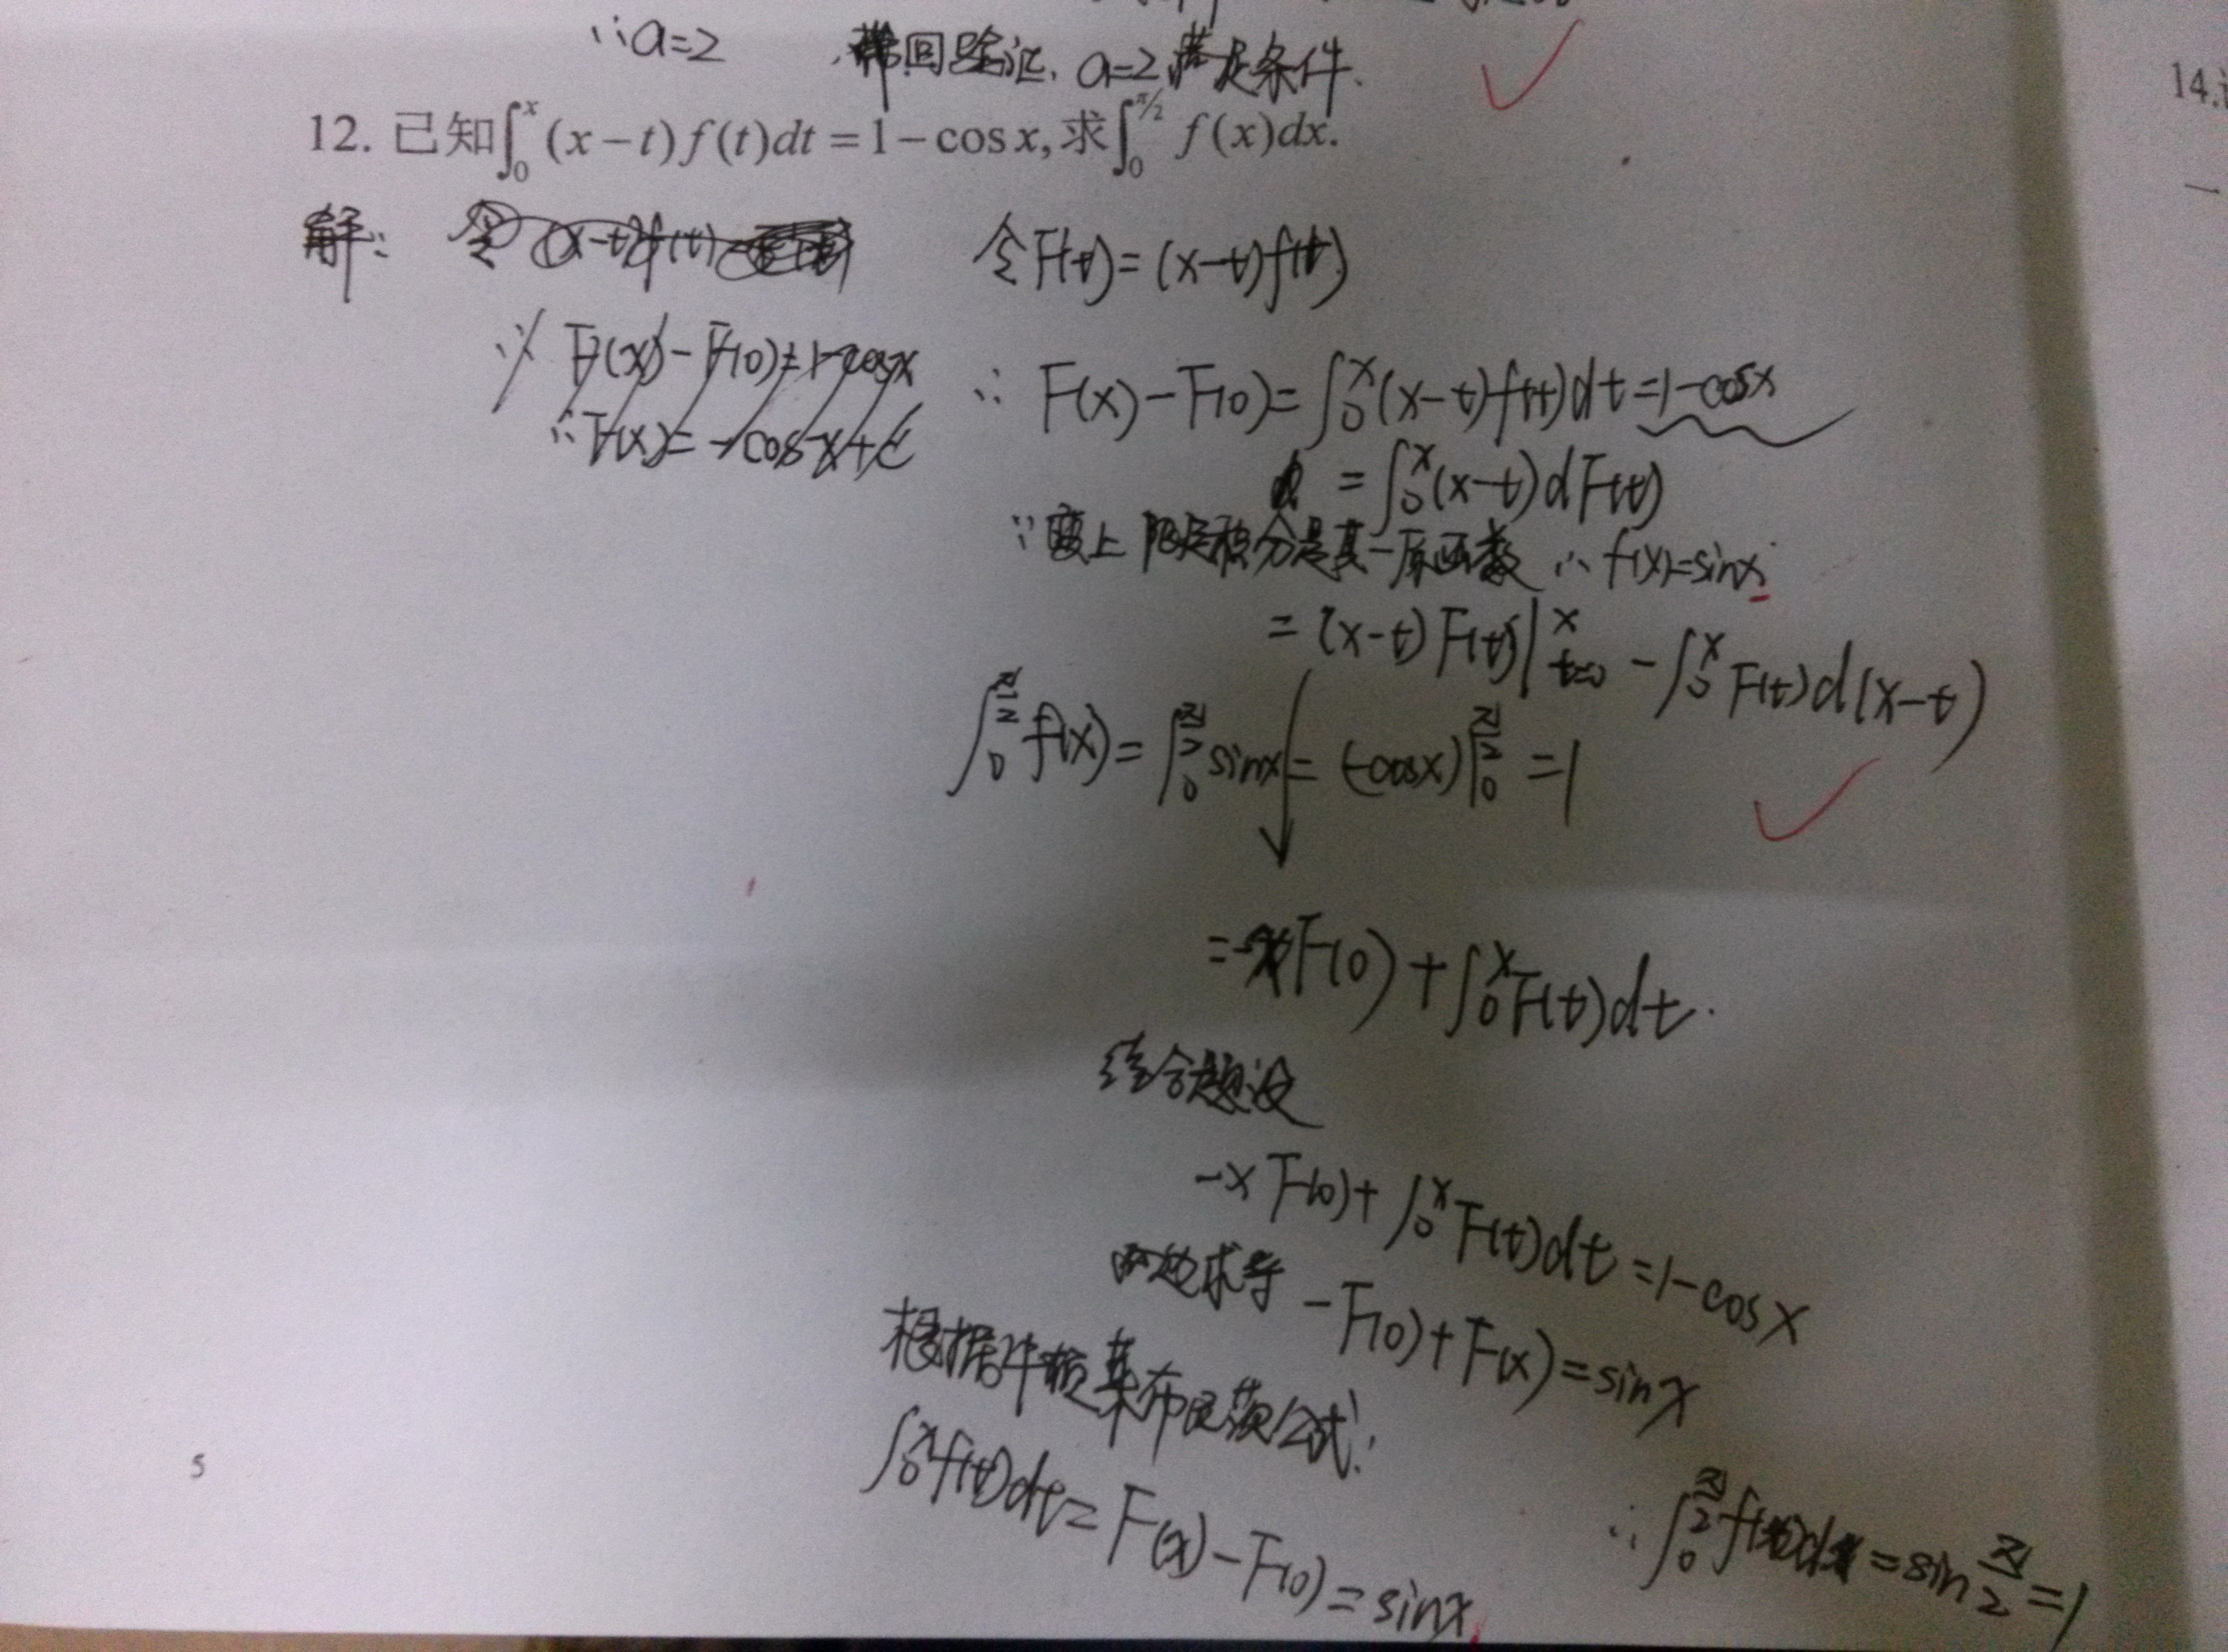 ∵a=2 带回验证, a=2满足条件.
12. 已知∫₀ˣ(x−t)f(t)dt=1−cosx,求∫₀^{π/2} f(x)dx.
14.
解: 令 (x-t)f(t) 令F(t)=(x-t)f(t)
∴ F(x)-F(0)=1-cosx
∴F(x)=-cosx+c
∴ F(x)-F(0)=∫₀ˣ(x-t)f(t)dt=1-cosx
=∫₀ˣ(x-t)dF(t)
∵变上限定积分是其一原函数 ∴f(x)=sinx
=(x-t)F(t)|ˣₜ₌₀ -∫₀ˣF(t)d(x-t)
∫₀^{π/2}f(x)=∫₀^{π/2}sinx=(-cosx)|₀^{π/2}=1
=-xF(0)+∫₀ˣF(t)dt.
结合题设
-xF(0)+∫₀ˣF(t)dt=1-cosx
两边求导 -F(0)+F(x)=sinx
根据牛顿莱布尼茨公式:
∫₀ˣf(t)dt=F(x)-F(0)=sinx
∴∫₀^{π/2}f(x)dx=sin π/2=1
5